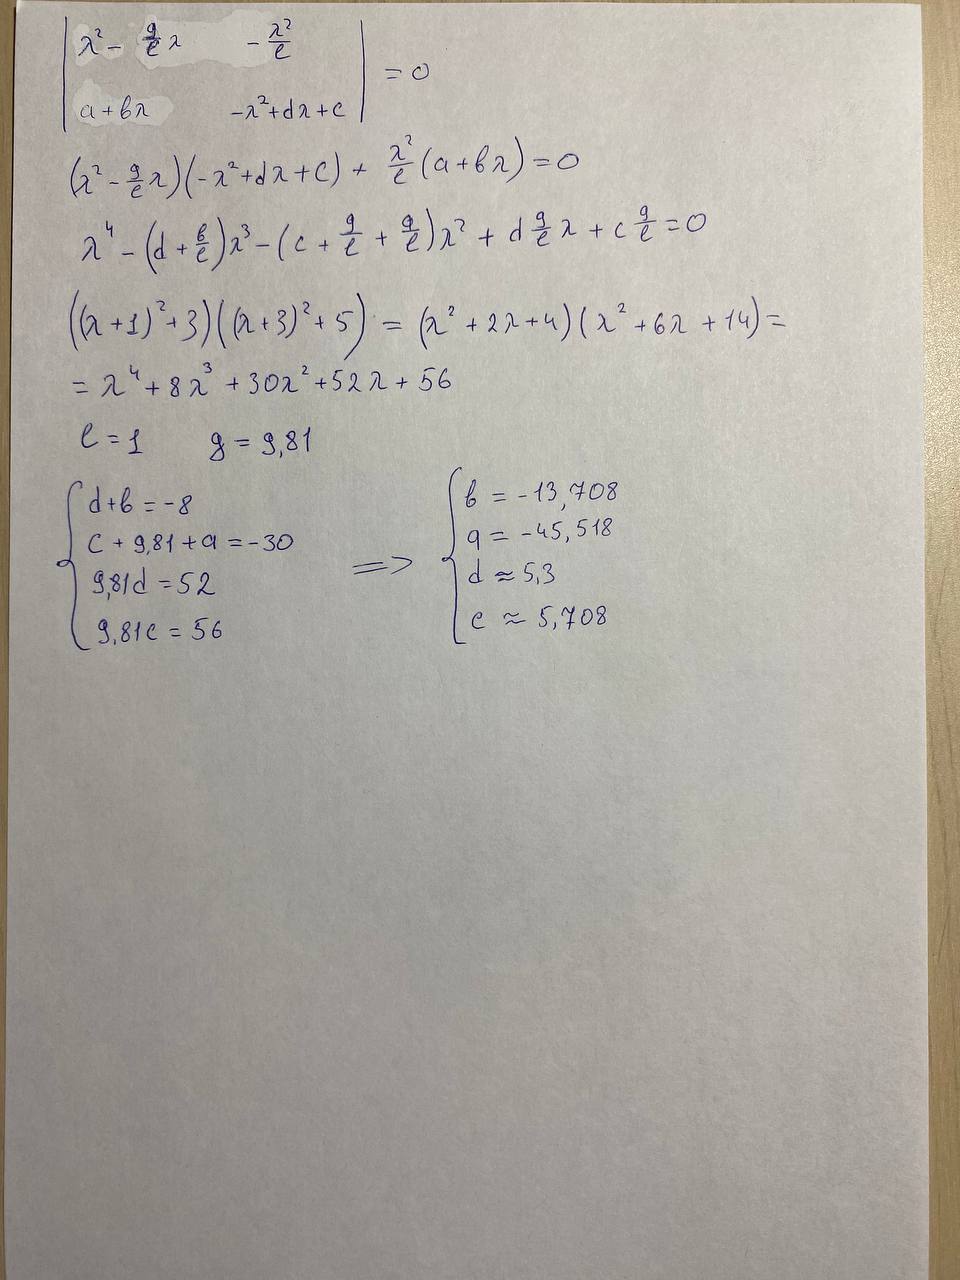 | λ² - g/ℓ λ   - λ²/ℓ |
| a+bλ   -λ²+dλ+c | = 0
(λ² - g/ℓ λ)(-λ²+dλ+c) + λ²/ℓ (a+bλ) = 0
λ⁴ - (d + b/ℓ)λ³ - (c + g/ℓ + g/ℓ)λ² + d g/ℓ λ + c g/ℓ = 0
((λ+1)²+3)((λ+3)²+5) = (λ² + 2λ+4)(λ²+6λ+14) =
= λ⁴ + 8λ³ + 30λ² + 52λ + 56
ℓ = 1   g = 9,81
{ d+b = -8
c + 9,81 + a = -30
9,81d = 52
9,81c = 56
=> { b = -13,708
a = -45,518
d ≈ 5,3
c ≈ 5,708